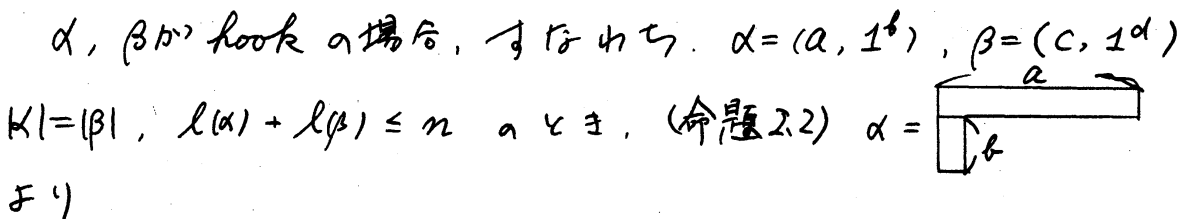 α, βが hook の場合, すなわち. α=(a, 1^b), β=(c, 1^d)
|α|=|β|, l(α)+l(β)≤n のとき, (命題2.2) α= a b
より